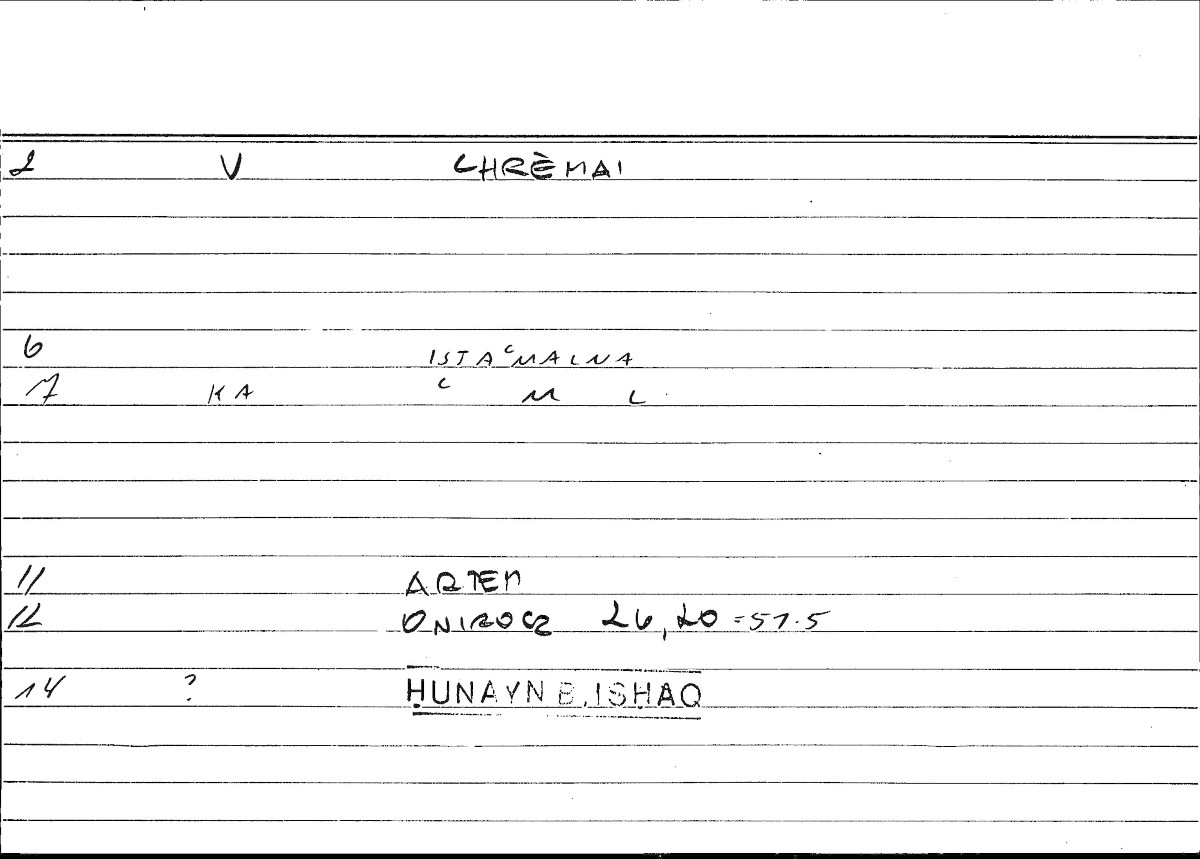 2 V CHRÈMAI
6 ISTAʿMALNA
7 KA ʿ M L
11 ARTEM
12 ONIROCR 26,20 = 51.5
14 ? ḤUNAYN B. ISḤAQ